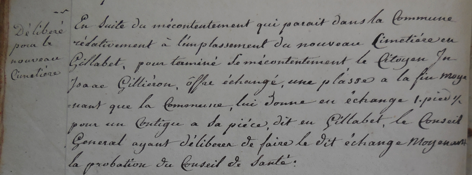 Déliberé
pour le
nouveau
Cimetière
En Suite du mécontentement qui parait dans la Commune
rélativement à l'implassement du nouveau Cimetière en
Gillabet, pour terminé le mécontentement le Citoyen Jn
Isaac Gilliéron, offre échangé, une plàsse a la fin moye
nant que la Commune, lui donne en échange 1. pièce
pour un Contigu a sa pièce, dit en Gillabet, le Conseil
General ayant déliberer de faire le dit échange Moyennant
la probation du Conseil de Santé.